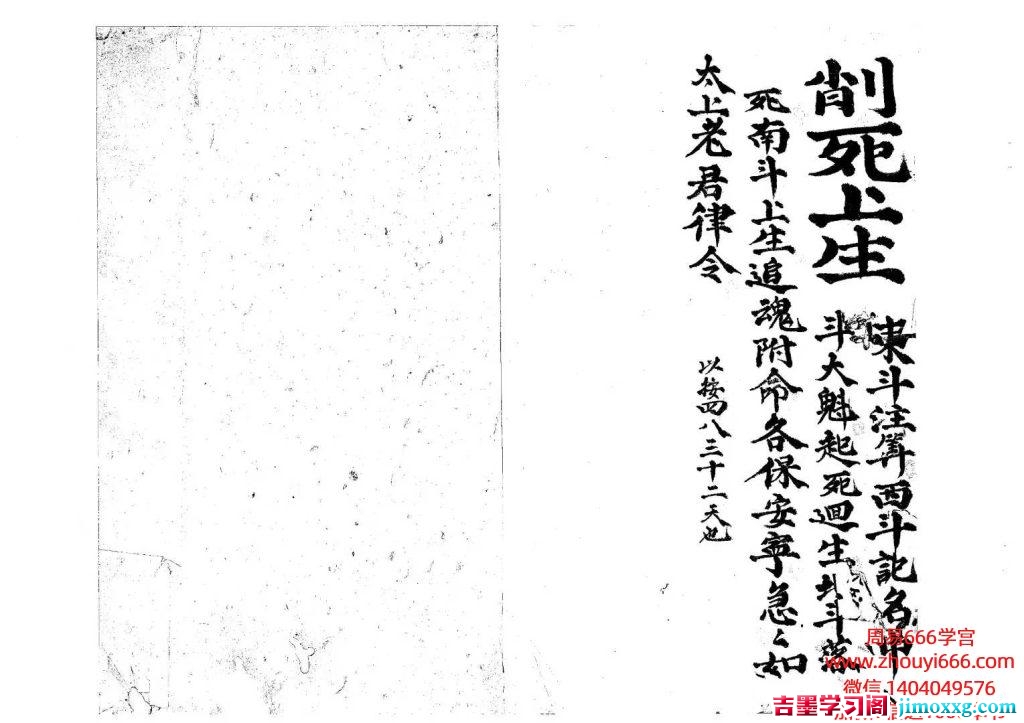 削死上生
東斗注筭西斗記名
斗大魁起死迴生北斗落
死南斗上生追魂附命各保安寧急々如
太上老君律令
以按四八三十二天也
周易666学宫
www.zhouyi666.com
微信1404049576
吉墨学习阁 jimoxxg.com